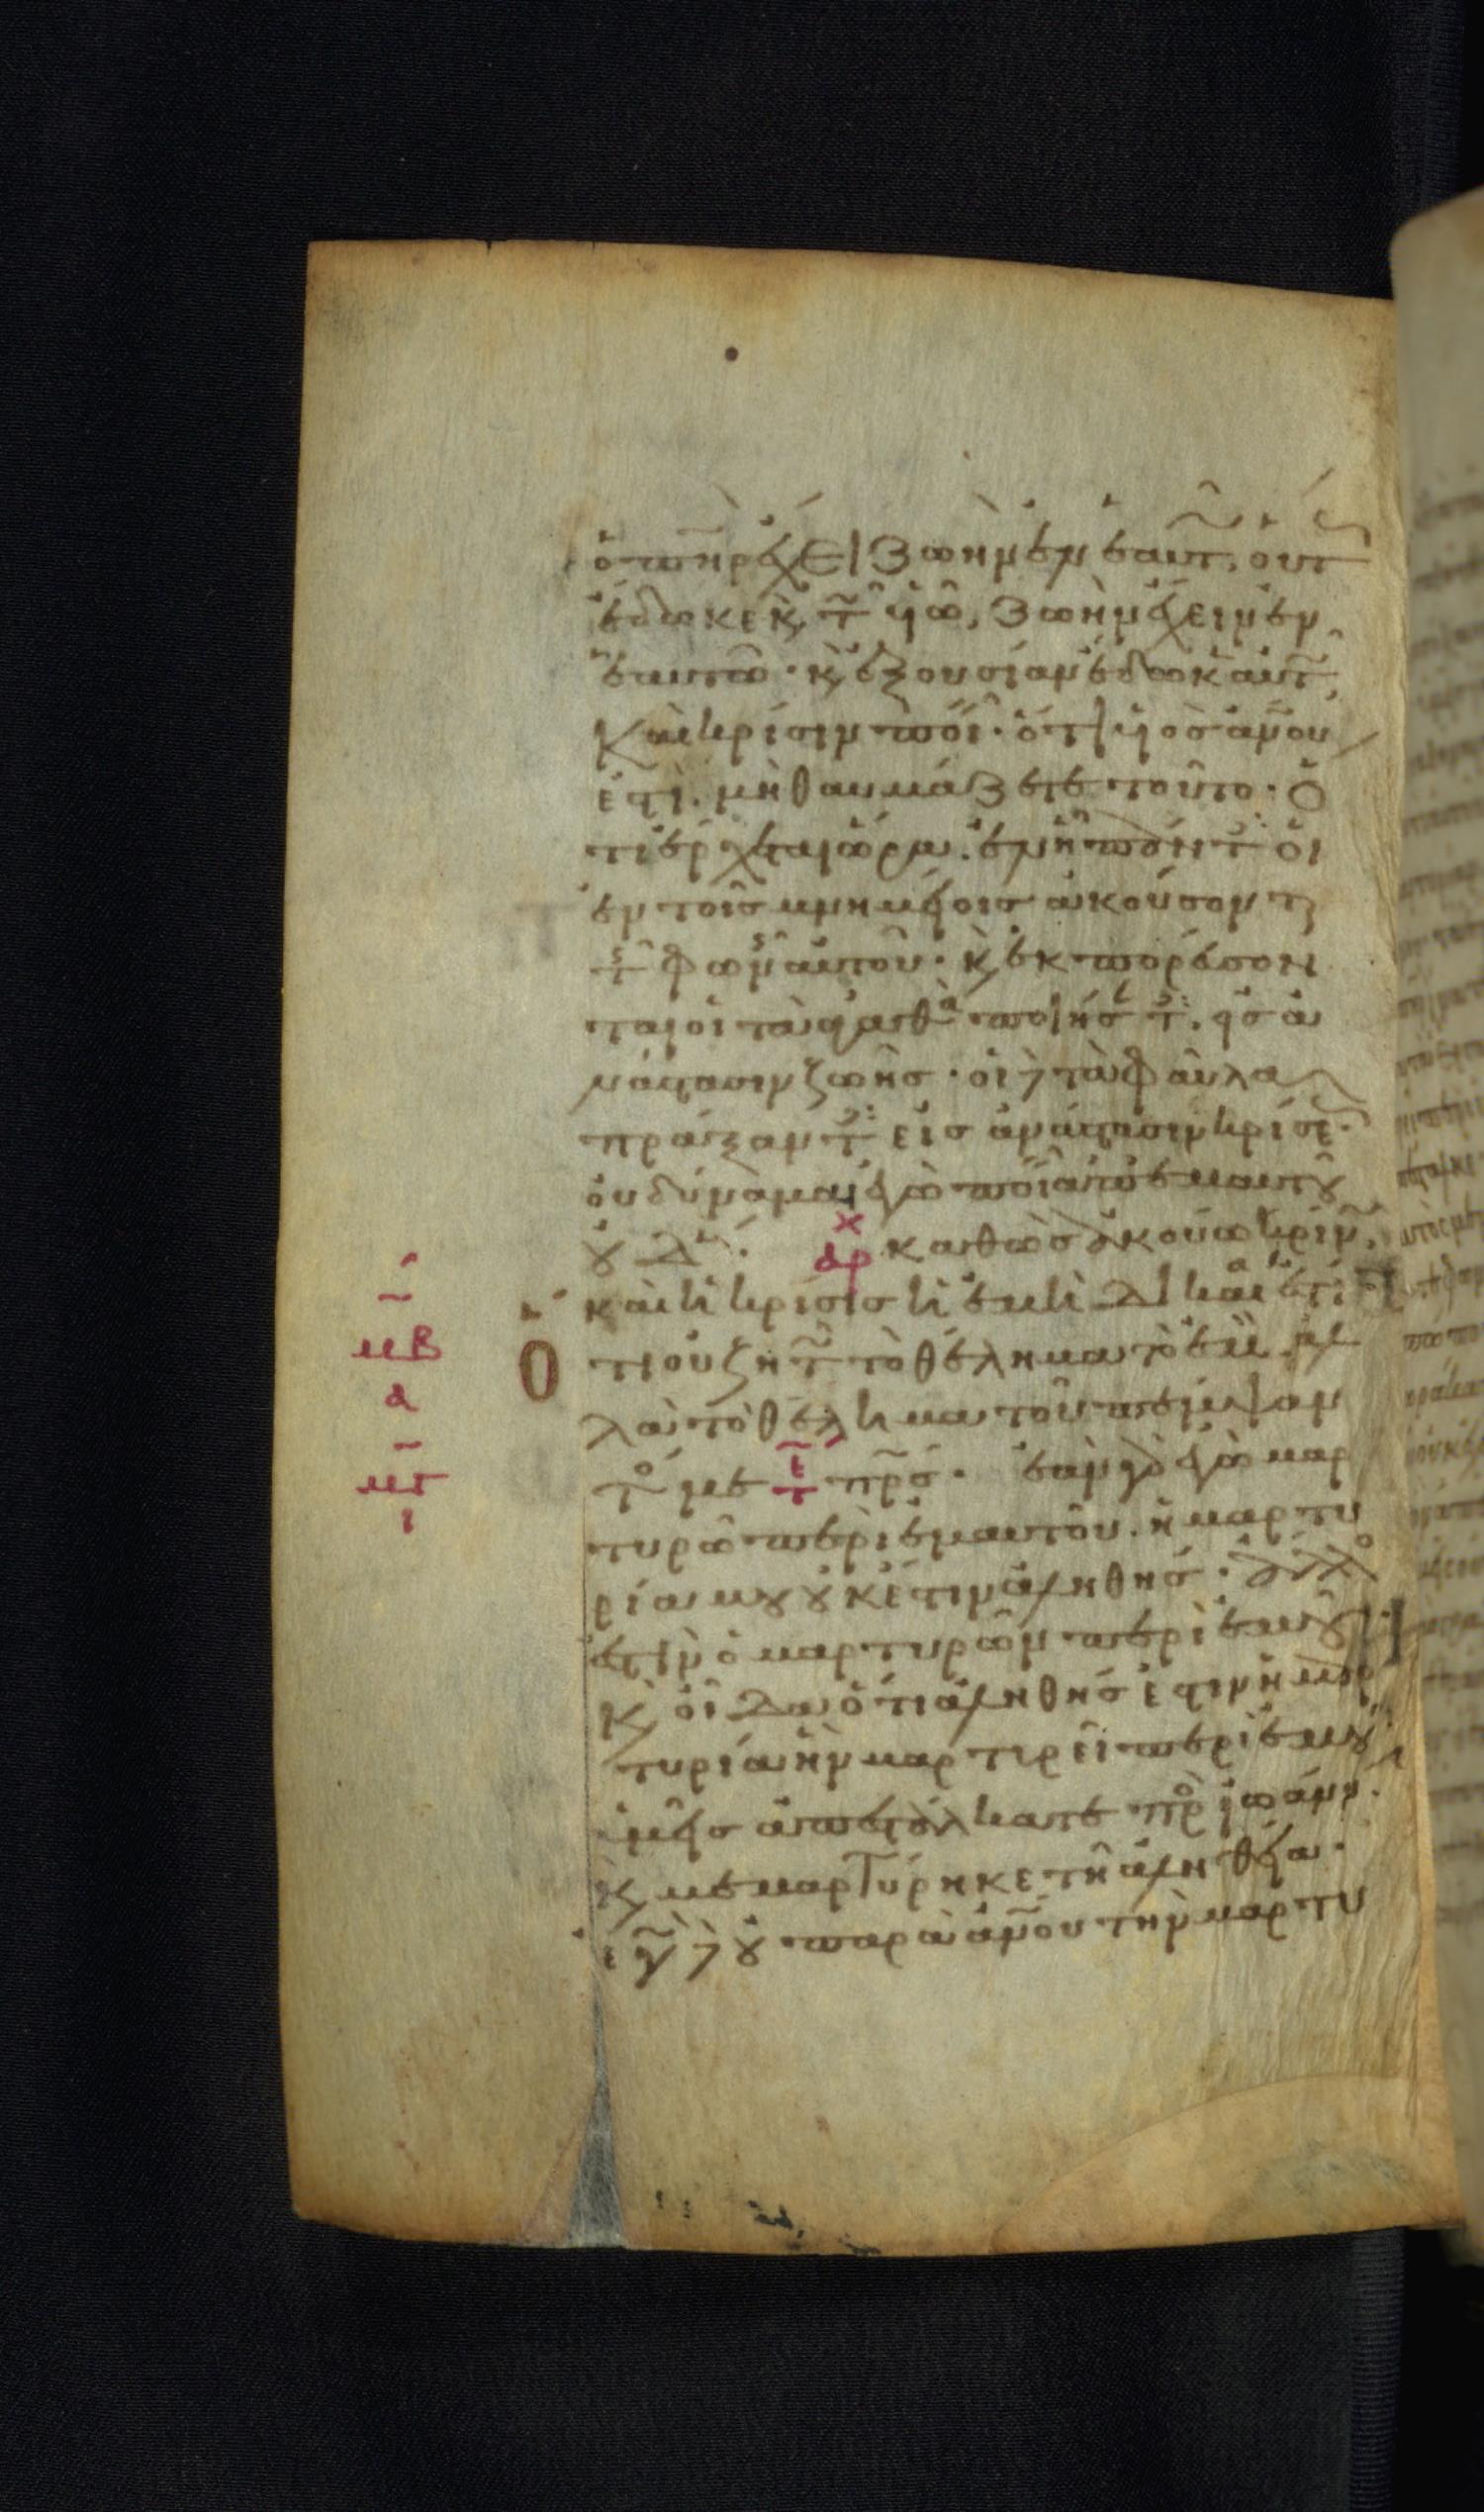 ὁ πηρ ἔχει ζωὴν ἐν ἑαυτ, οὕτ
ἔδωκε κ τ υἱῶ, ζωὴν ἔχειν ἐν
ἑαυτῶ· κ ἐξουσίαν ἔδωκ αὐτ
καὶ κρίσιν ποι· ὅτι υἱὸσ ανου
ἐστὶ. μὴ θαυμάζετε τοῦτο· ὅ
τι ἔρχεται ὥρα. ἐν ἧ πάντ οἱ
ἐν τοῖσ μνημείοισ ἀκούσοντ
τ φων αὐτοῦ· κ ἐκπορεύσον
ται οἱ τὰ ἀγαθ ποιήσ τ. εἰσ ἀ
νάστασιν ζωῆσ· οἱ δ τὰ φαῦλα
πράξαντ εἰσ ἀνάστασιν κρίσε·
οὐ δύναμαι ἐγὼ ποι ἀπ ἐμαυτου
ουδ·
αρχ καθὼσ ἀκούω κρίν.
καὶ ἡ κρίσισ ἡ ἐμὴ δικαι ἐστί
μβ
α
μγ
ι
Ο
τι οὐ ζητ τὸ θέλημα τὸ ἐμ. ἀλ
λὰ τὸ θέλημα τοῦ πέμψαν
τ με τε πρσ· ἐὰν ἐγὼ μαρ
τυρῶ περὶ ἐμαυτοῦ. ἡ μαρτυ
ρία μου οὐκ ἔστιν ἀληθησ· ἄλλο
ἐστὶν ὁ μαρτυρῶν περὶ ἐμοῦ·
κ οἶδα ὅτι ἀληθήσ ἐστιν ἡ μαρ
τυρία ἣν μαρτιρεῖ περὶ ἐμοῦ·
ὑμεῖσ ἀπεστάλκατε πρ ἰωάνν·
κ μεμαρτύρηκε τῆ ἀληθεία·
ἐγ δ οὐ παρὰ ανου τὴν μαρτυ